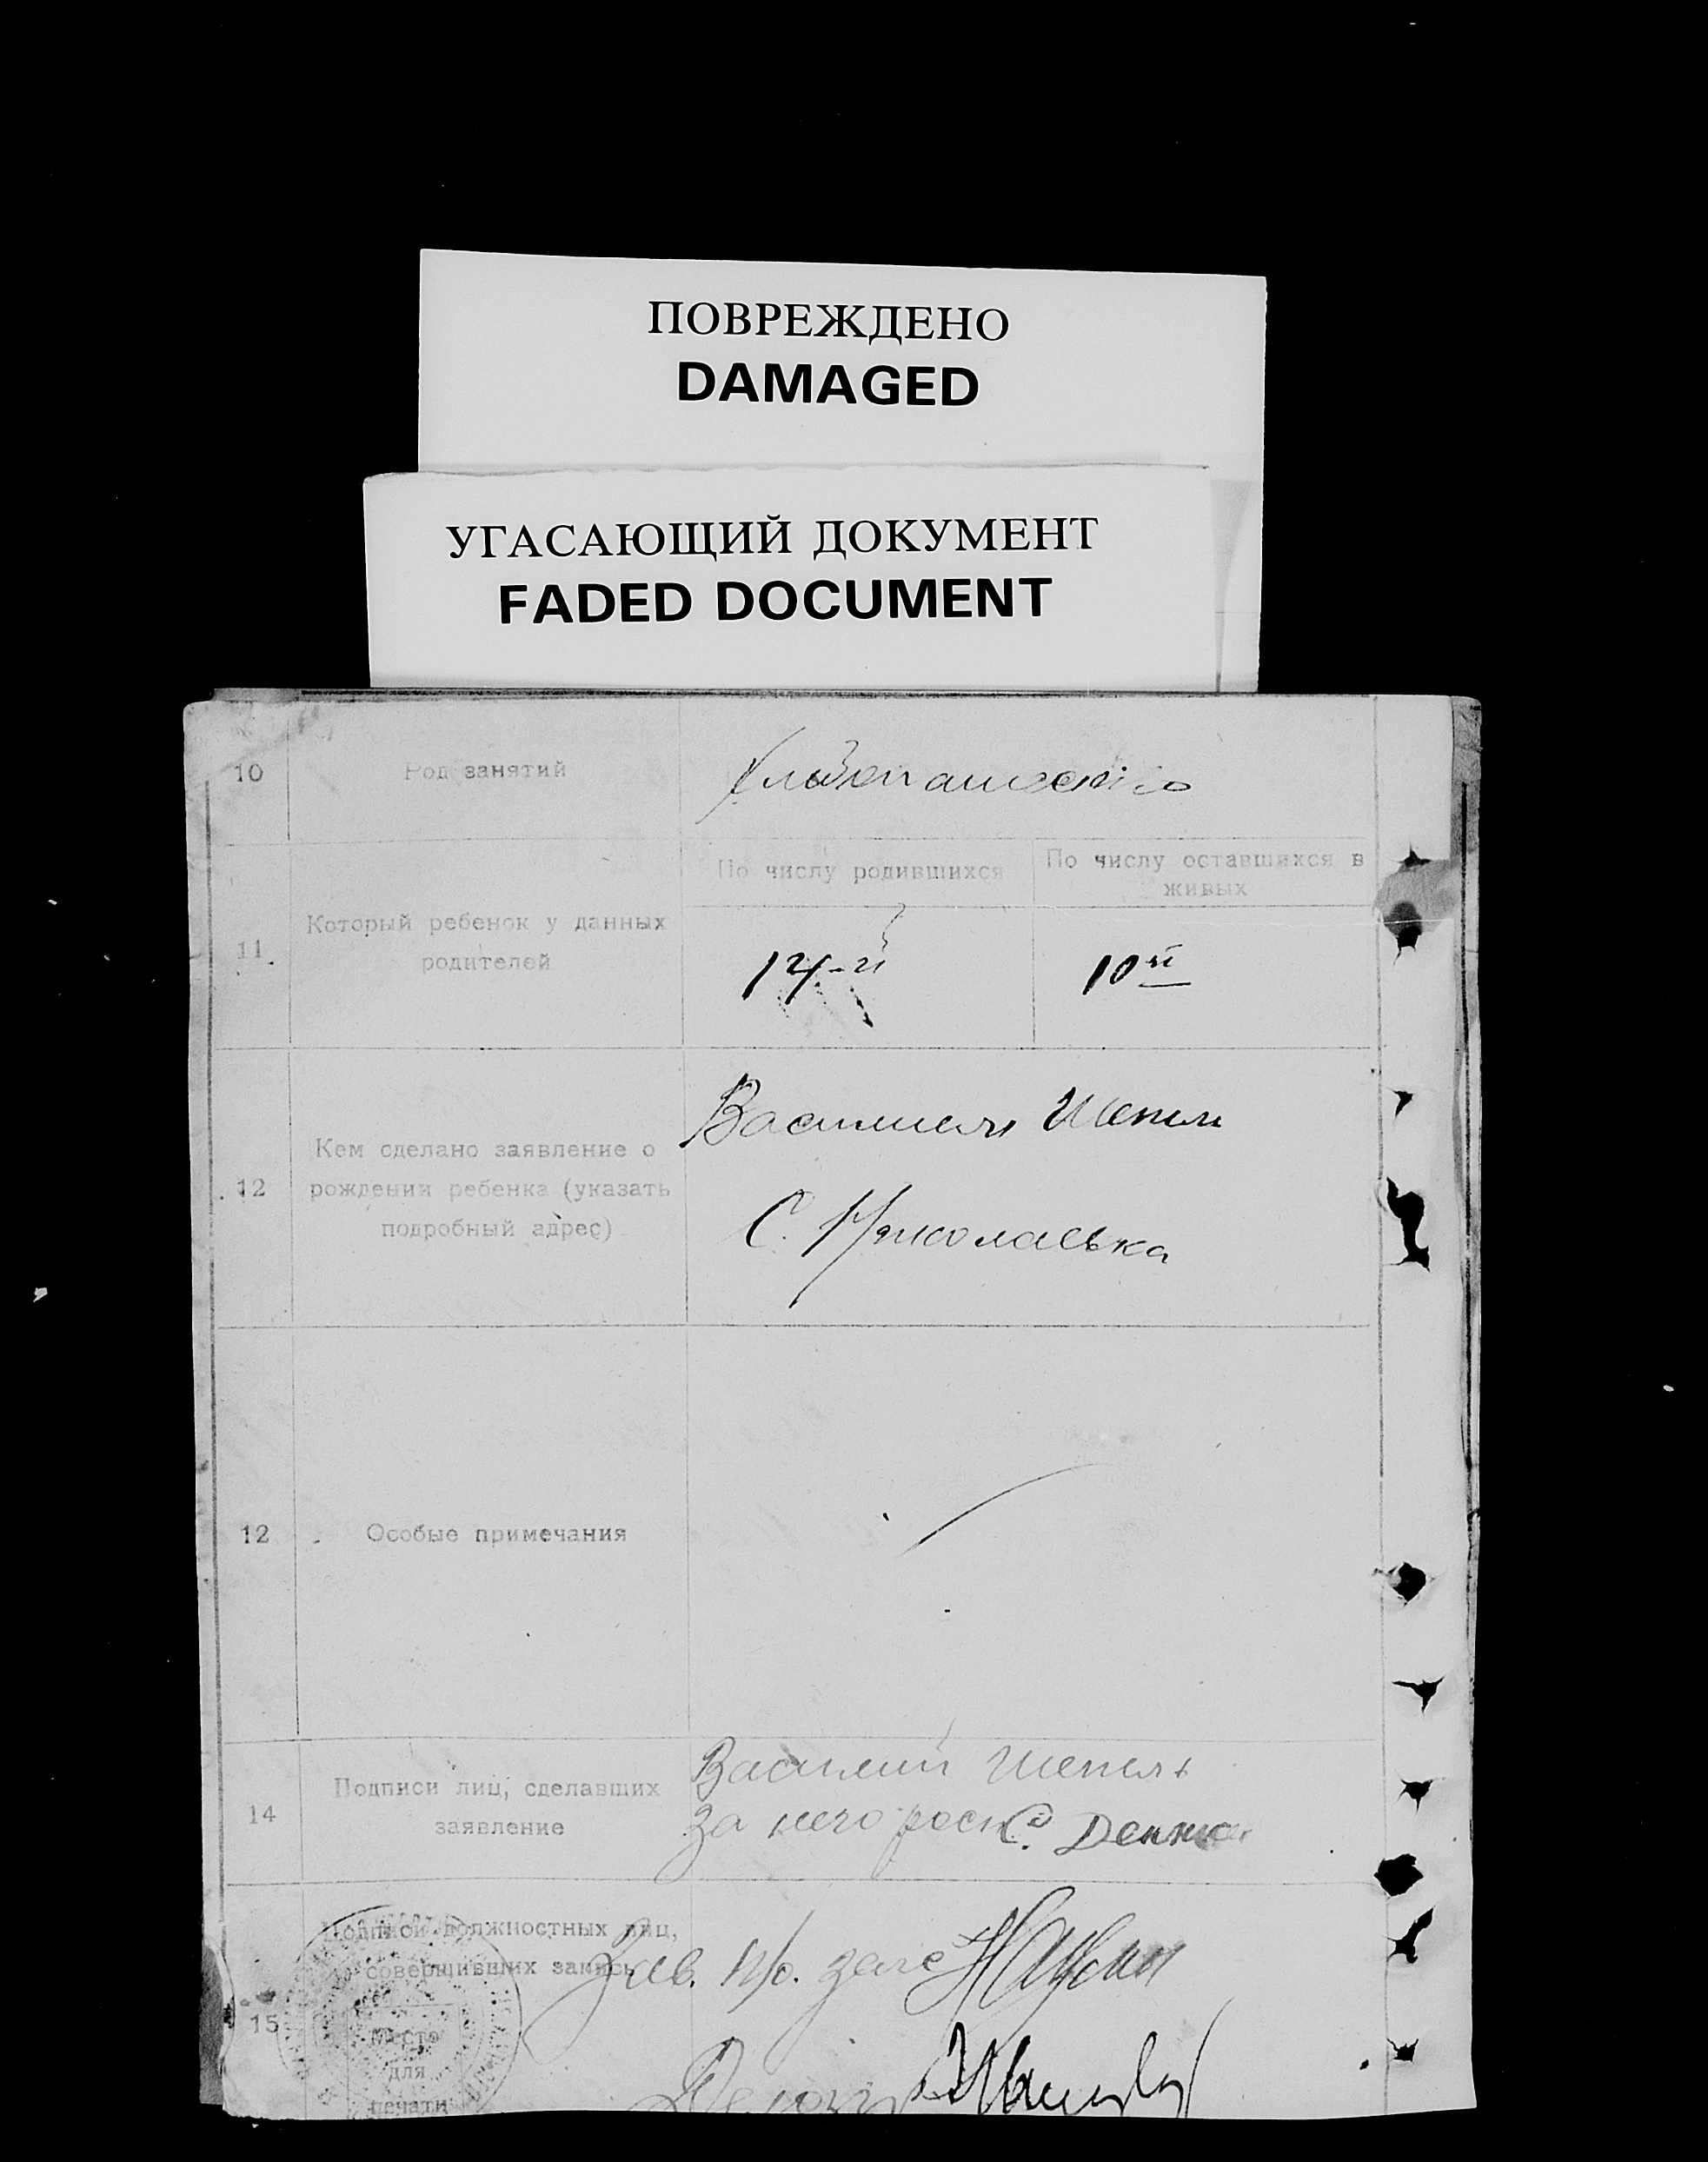 ПОВРЕЖДЕНО
DAMAGED
УГАСАЮЩИЙ ДОКУМЕНТ
FADED DOCUMENT
10 Род занятий
По числу родившихся
По числу оставшихся в
живых
11. Который ребенок у данных
родителей
14-й
10й
12 Кем сделано заявление о
рождении ребенка (указать
подробный адрес)
Шепель
С.
12 Особые примечания
14 Подписи лиц, сделавших
заявление
Василий Шепель
За него
С.
15 Подписи должностных лиц,
совершивших запись
Зав.
Место
для
печати